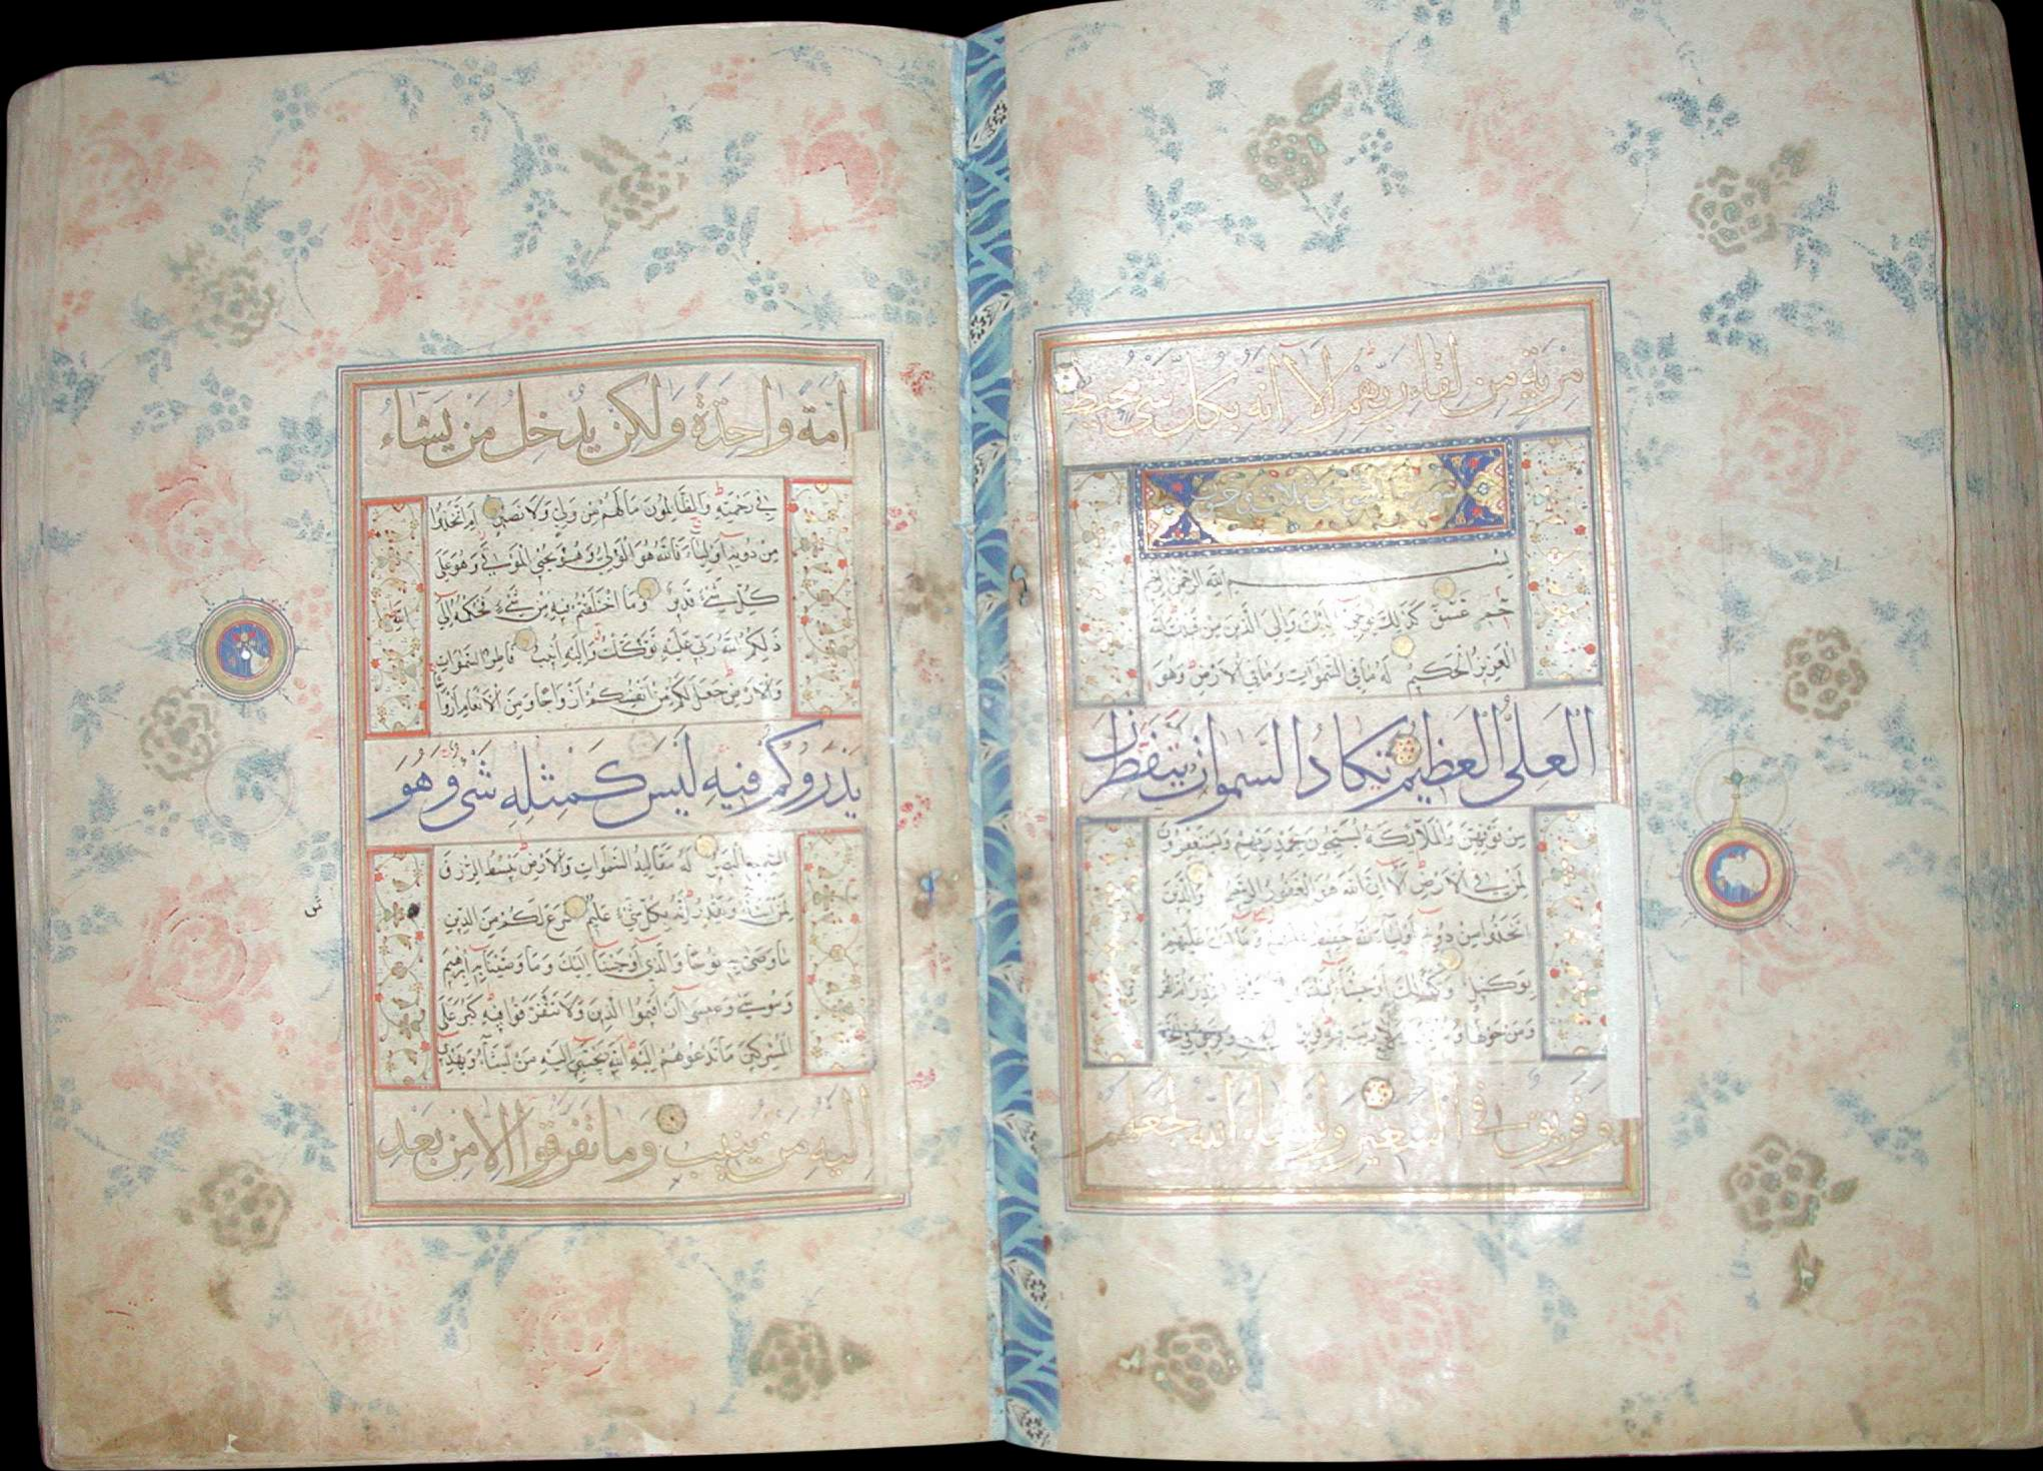 مِرْيَةٍ مِنْ لِقَاءِ رَبِّهِمْ أَلَا إِنَّهُ بِكُلِّ شَىْءٍ مُحِيطٌ
سورة
بِسْمِ اللَّهِ الرَّحْمَنِ الرَّحِيمِ
حم عسق كَذَلِكَ يُوحِي إِلَيْكَ وَإِلَى الَّذِينَ مِنْ قَبْلِكَ اللَّهُ
الْعَزِيزُ الْحَكِيمُ لَهُ مَا فِي السَّمَوَاتِ وَمَا فِي الْأَرْضِ وَهُوَ
الْعَلِيُّ الْعَظِيمُ تَكَادُ السَّمَوَاتُ يَتَفَطَّرْنَ
مِنْ فَوْقِهِنَّ وَالْمَلَائِكَةُ يُسَبِّحُونَ بِحَمْدِ رَبِّهِمْ وَيَسْتَغْفِرُونَ
لِمَنْ فِي الْأَرْضِ أَلَا إِنَّ اللَّهَ هُوَ الْغَفُورُ الرَّحِيمُ وَالَّذِينَ
اتَّخَذُوا مِنْ دُونِهِ أَوْلِيَاءَ اللَّهُ حَفِيظٌ عَلَيْهِمْ وَمَا أَنْتَ عَلَيْهِمْ
بِوَكِيلٍ وَكَذَلِكَ أَوْحَيْنَا إِلَيْكَ
وَمَنْ حَوْلَهَا وَتُنْذِرَ فِيهِ فَرِيقٌ فِي الْجَنَّةِ
وَفَرِيقٌ فِي السَّعِيرِ وَلَوْ شَاءَ اللَّهُ لَجَعَلَهُمْ
أُمَّةً وَاحِدَةً وَلَكِنْ يُدْخِلُ مَنْ يَشَاءُ
فِي رَحْمَتِهِ وَالظَّالِمُونَ مَا لَهُمْ مِنْ وَلِيٍّ وَلَا نَصِيرٍ أَمِ اتَّخَذُوا
مِنْ دُونِهِ أَوْلِيَاءَ فَاللَّهُ هُوَ الْوَلِيُّ وَهُوَ يُحْيِي الْمَوْتَى وَهُوَ عَلَى
كُلِّ شَيْءٍ قَدِيرٌ وَمَا اخْتَلَفْتُمْ فِيهِ مِنْ شَيْءٍ فَحُكْمُهُ إِلَى اللَّهِ
ذَلِكُمُ اللَّهُ رَبِّي عَلَيْهِ تَوَكَّلْتُ وَإِلَيْهِ أُنِيبُ فَاطِرُ السَّمَوَاتِ
وَالْأَرْضِ جَعَلَ لَكُمْ مِنْ أَنْفُسِكُمْ أَزْوَاجًا وَمِنَ الْأَنْعَامِ أَزْوَاجًا
يَذْرَؤُكُمْ فِيهِ لَيْسَ كَمِثْلِهِ شَىْءٌ وَهُوَ
السَّمِيعُ الْبَصِيرُ لَهُ مَقَالِيدُ السَّمَوَاتِ وَالْأَرْضِ يَبْسُطُ الرِّزْقَ
لِمَنْ يَشَاءُ وَيَقْدِرُ إِنَّهُ بِكُلِّ شَيْءٍ عَلِيمٌ شَرَعَ لَكُمْ مِنَ الدِّينِ
مَا وَصَّى بِهِ نُوحًا وَالَّذِي أَوْحَيْنَا إِلَيْكَ وَمَا وَصَّيْنَا بِهِ إِبْرَهِيمَ
وَمُوسَى وَعِيسَى أَنْ أَقِيمُوا الدِّينَ وَلَا تَتَفَرَّقُوا فِيهِ كَبُرَ عَلَى
الْمُشْرِكِينَ مَا تَدْعُوهُمْ إِلَيْهِ اللَّهُ يَجْتَبِي إِلَيْهِ مَنْ يَشَاءُ وَيَهْدِي
إِلَيْهِ مَنْ يُنِيبُ وَمَا تَفَرَّقُوا إِلَّا مِنْ بَعْدِ